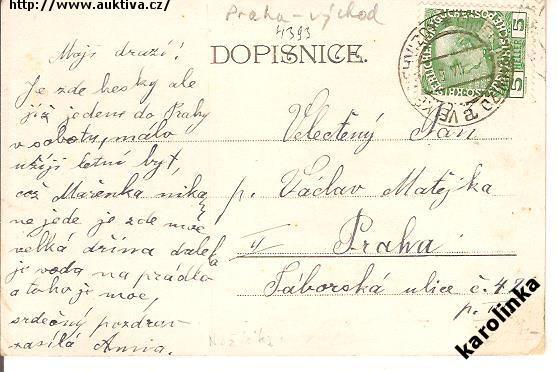 http://www.auktiva.cz/
Praha-východ
4393
DOPISNICE.
5 5
Moji drazí!
Je zde hesky ale
již jedeme do Prahy
v sobotu, málo
užiji letní byt,
což Mařenka nika
ne jede je zde moc
velká dřina daleka
je voda na prádlo
a toho je moc,
srdečný pozdrav
zasílá Anna.
Velectěný Pán
p. Václav Matějka
Praha
Táborská ulice č. 48
p.
karolinka